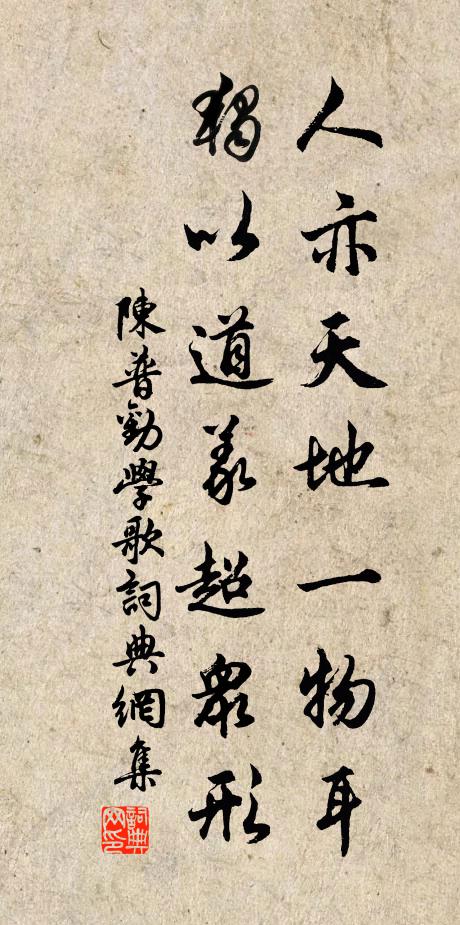 人亦天地一物耳
獨以道義超眾形
陳普勸學歌詞典網集
詞典网印